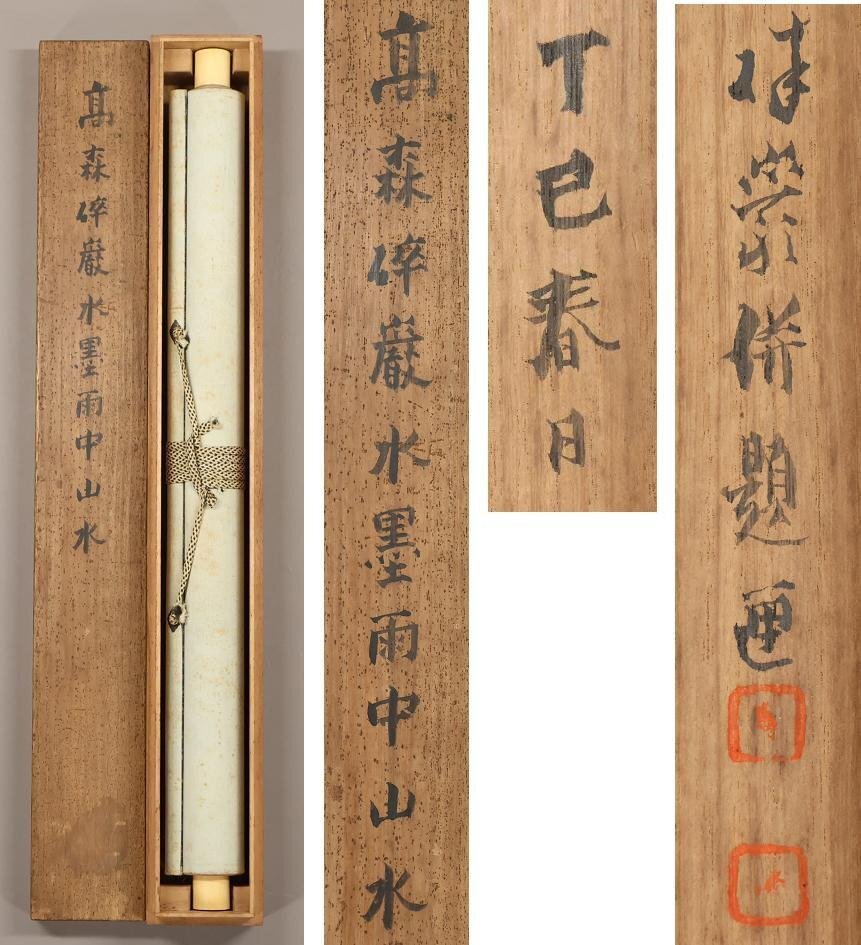 高森碎巖水墨雨中山水
高森碎巖水墨雨中山水
丁巳春日
併題